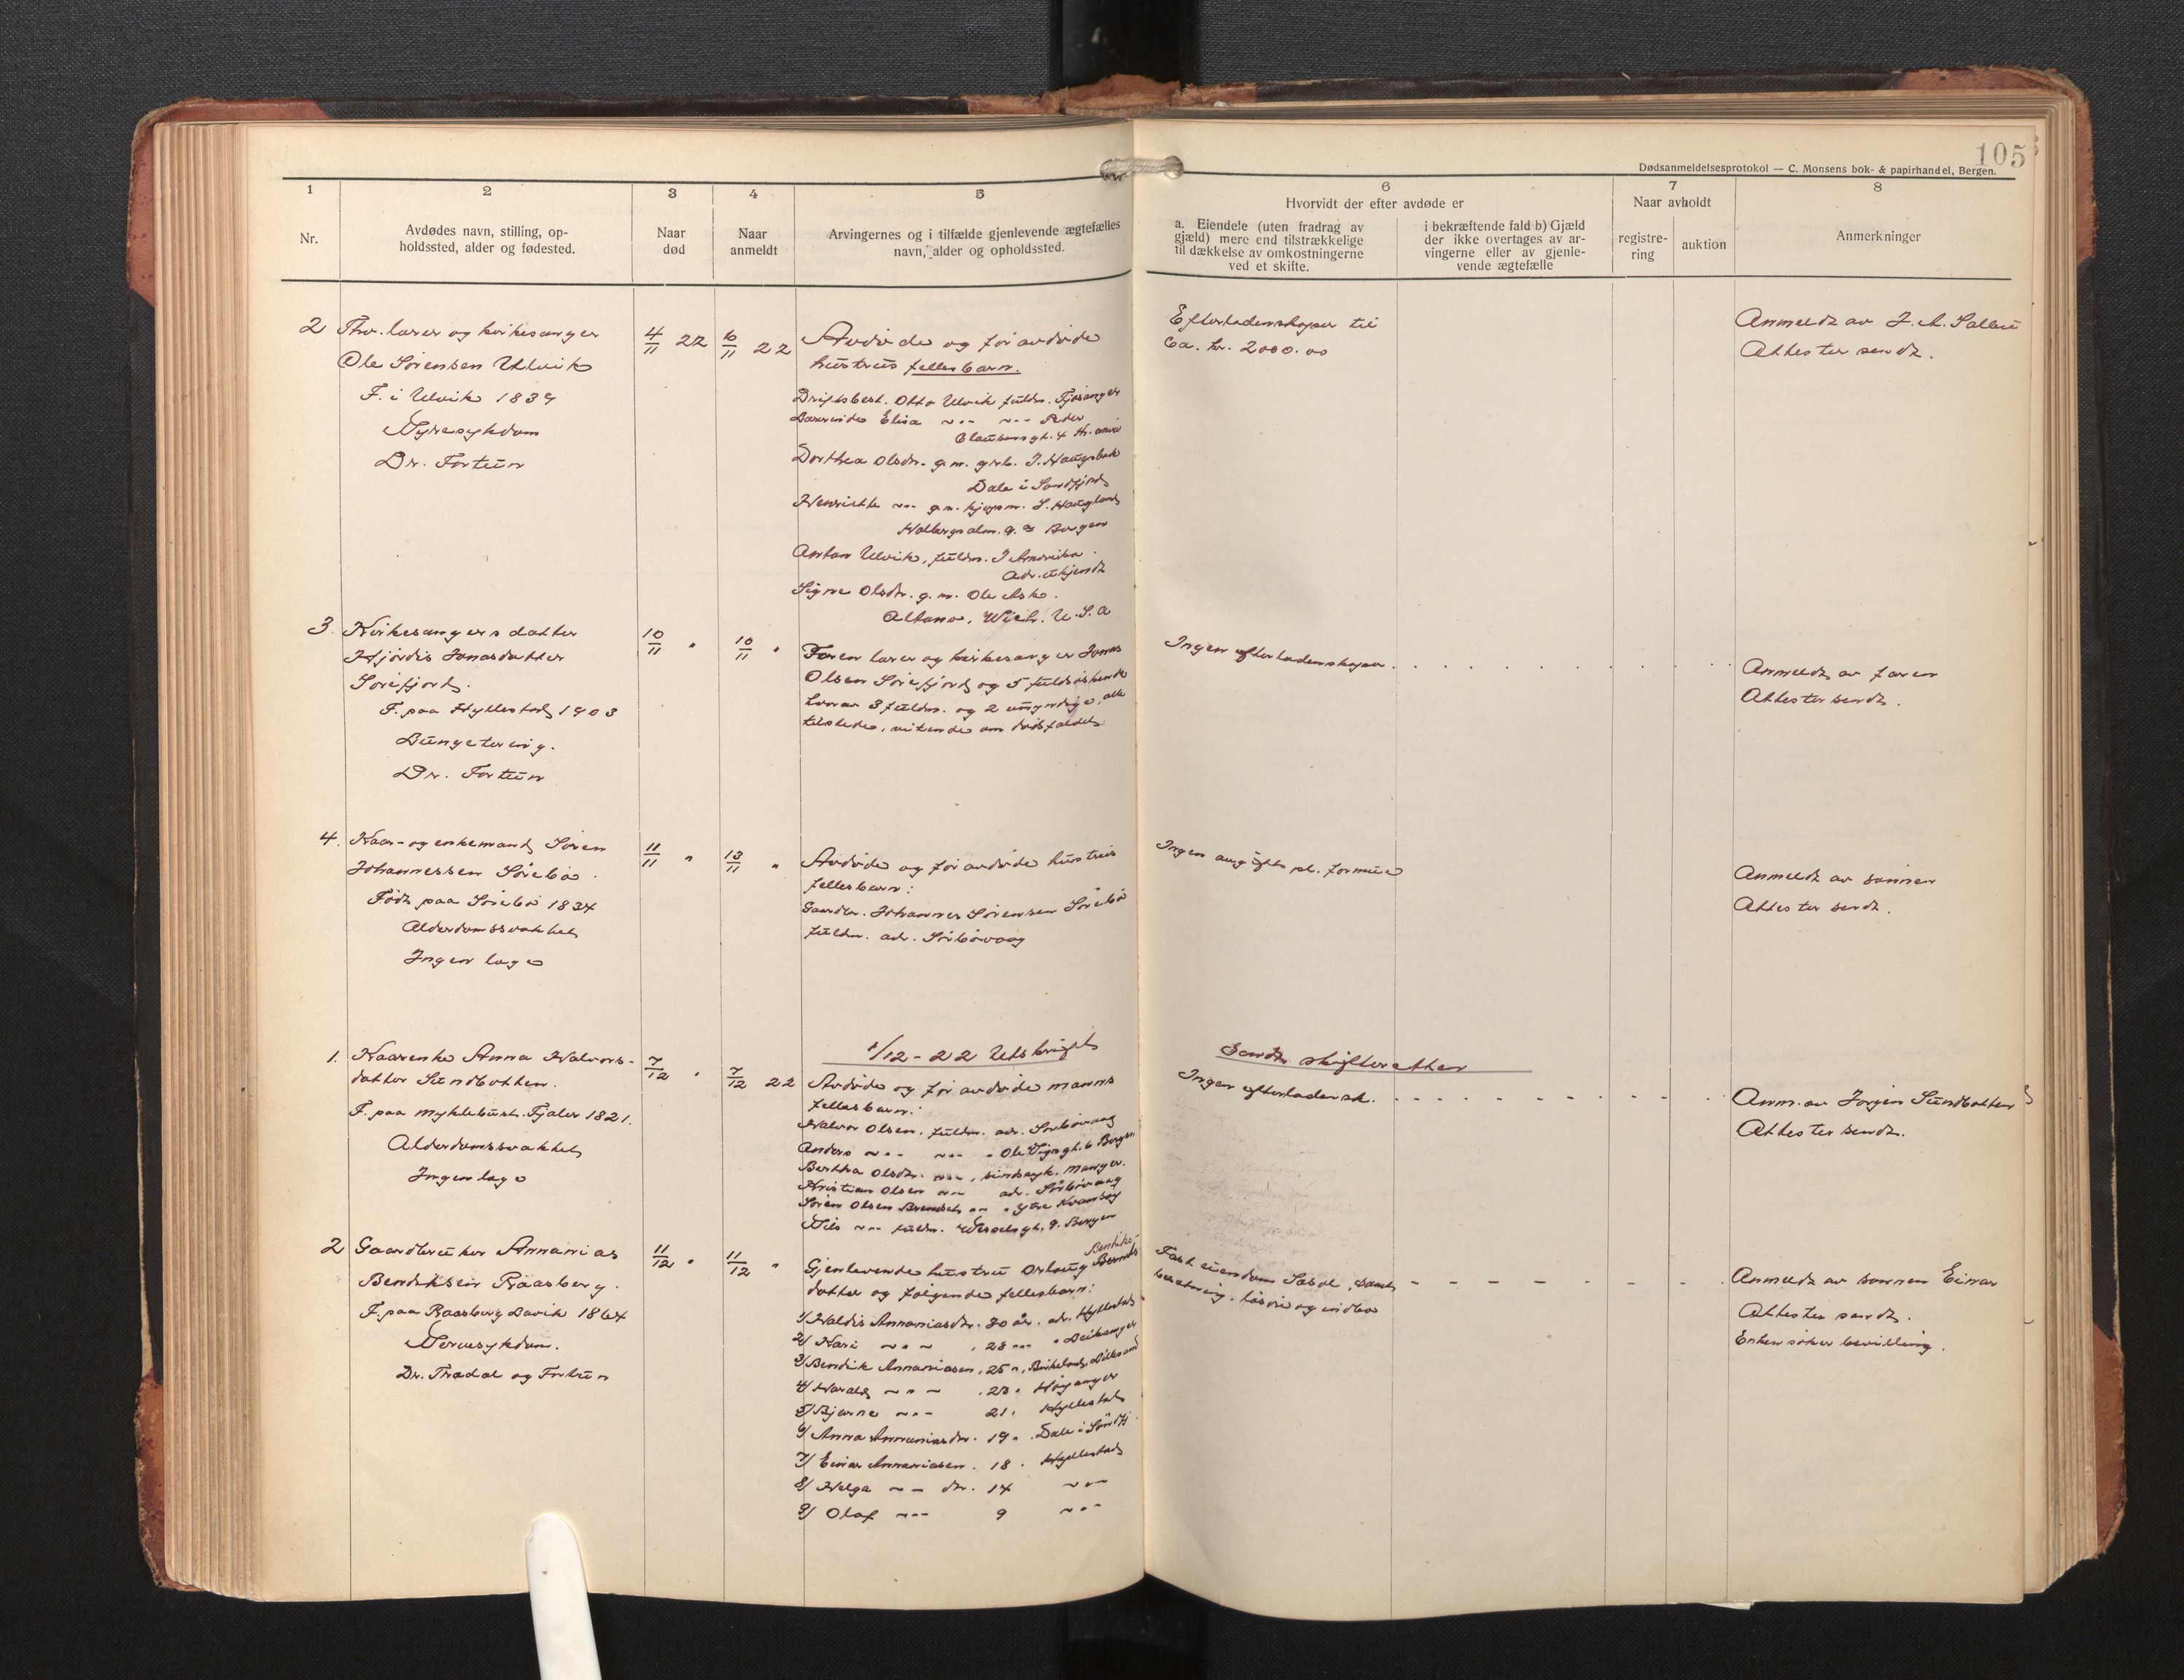 105
Dødsanmeldelsesprotokol — C. Monsens bok- & papirhandel, Bergen.
1 2 3 4 5 6 7 8
Nr.
Avdødes navn, stilling, op-
holdssted, alder og fødested.
Naar
død
Naar
anmeldt
Arvingernes og i tilfælde gjenlevende ægtefælles
navn, alder og opholdssted.
Hvorvidt der efter avdøde er
a. Eiendele (uten fradrag av
gjæld) mere end tilstrækkelige
til dækkelse av omkostningerne
ved et skifte.
i bekræftende fald b) Gjæld
der ikke overtages av ar-
vingerne eller av gjenle-
vende ægtefælle
Naar avholdt
registre-
ring
auktion
Anmerkninger
2 Fhv. lærer og kirkesanger
Ole Sørensen Ulvik
F. i Ulvik
Nyresykdom
Dr. Fortun
4/11 22
6/11 22
Avdøde og før avdøde
hustrus fellesbarn.
Driftsbest. Otto Ulvik fuldm. Fjøsanger
Elisa ~"~ ~"~ Peder
Claussensgt. 4
Dorthea Olsdtr. g.m. grb. J. Haugsbak
Dale i Søndfjord
Henriette ~"~ g.m. kjøpm. S. Haugland
Holbergsalm. 9. Bergen
Anton Ulvik, fuldm. I Amerika.
Adr. ukjendt
Signe Olsdtr. g.m. Ole Ask.
U.S.A
Efterladenskaper til
Ca. kr. 2000.00
Anmeldt av J. A.
Attester sendt.
3. Kirkesangers datter
Hjørdis Jonasdatter
Sørefjord.
F. paa Hyllestad 1903
Lungetæring.
Dr. Fortun
10/11 "
10/11 "
Faren lærer og kirkesanger Jonas
Olsen Sørefjord og 5 fuldsøskende
hvorav 3 fuldm. og 2 umyndige, alle
tilstede, vitende om dødsfaldet
Ingen efterladenskaper.
Anmeldt av faren
Attester sendt.
4. Kaar- og enkemand Søren
Johannessen Sørebø.
Født paa Sørebø 1834
Alderdomssvakhet
Ingen læge
11/11 "
13/11 "
Avdøde og før avdøde hustrus
fellesbarn:
Gaardbr. Johannes Sørensen Sørebø
fuldm. adr. Sørbøvaag
Ingen avgiftspl. formue
Anmeldt av sønnen
Attester sendt.
1/12 - 22 Utskrift
Sendt skifteretten
1. Kaarenke Anna Halvors-
datter Sundbotten.
F. paa Myklebust. Fjaler 1821.
Alderdomssvakhet
Ingen læge
7/12 "
7/12 22
Avdøde og før avdøde manns
fellesbarn:
Halvor Olsen. fuldm. adr. Sørbøvaag
Anders ~"~ ~"~ " Ole Vigsgt. 6 Bergen
Bertha Olsdtr. ~"~, sindssyk. Manger.
Kristian Olsen ~"~ adr. Sørbøvaag
Søren Olsen ~"~ " Ytre Kvamsøy
Nils ~"~ fuldm. Wesselsgt. 9. Bergen
Ingen efterladensk.
Anm. av Jørgen Sundbotten
Attester sendt.
2 Gaardbruker Annanias
Bendiksen Raasberg.
F. paa Raasberg Lavik 1864
Nervesykdom.
Dr. Thrædal og Fortun
11/12 "
11/12 "
Gjenlevende hustru Orlaug
Bendiks-
datter og følgende fellesbarn:
1/ Haldis Annaniasdtr. 30 år. adr. Hyllestad
2/ Kari ~"~ , 28 ~"~ " Leikanger
3/ Bendik Annaniasen, 25 ", Birkeland, Lillesand
4/ Harald ~"~ , 23 " Høyanger
5/ Bjarne ~"~ 21 " Hyllestad
6/ Anna Annaniasdtr. 19 " Dale i Søndfj.
7/ Einar Annaniasen. 18 " Hyllestad
8/ Helga ~"~ dtr. 14 ~"~
9/ Olaf ~"~ 9 ~"~
Fast eiendom, samt
besætning, løsøre og indbo
Anmeldt av sønnen Einar
Attester sendt.
Enken søker bevilling.